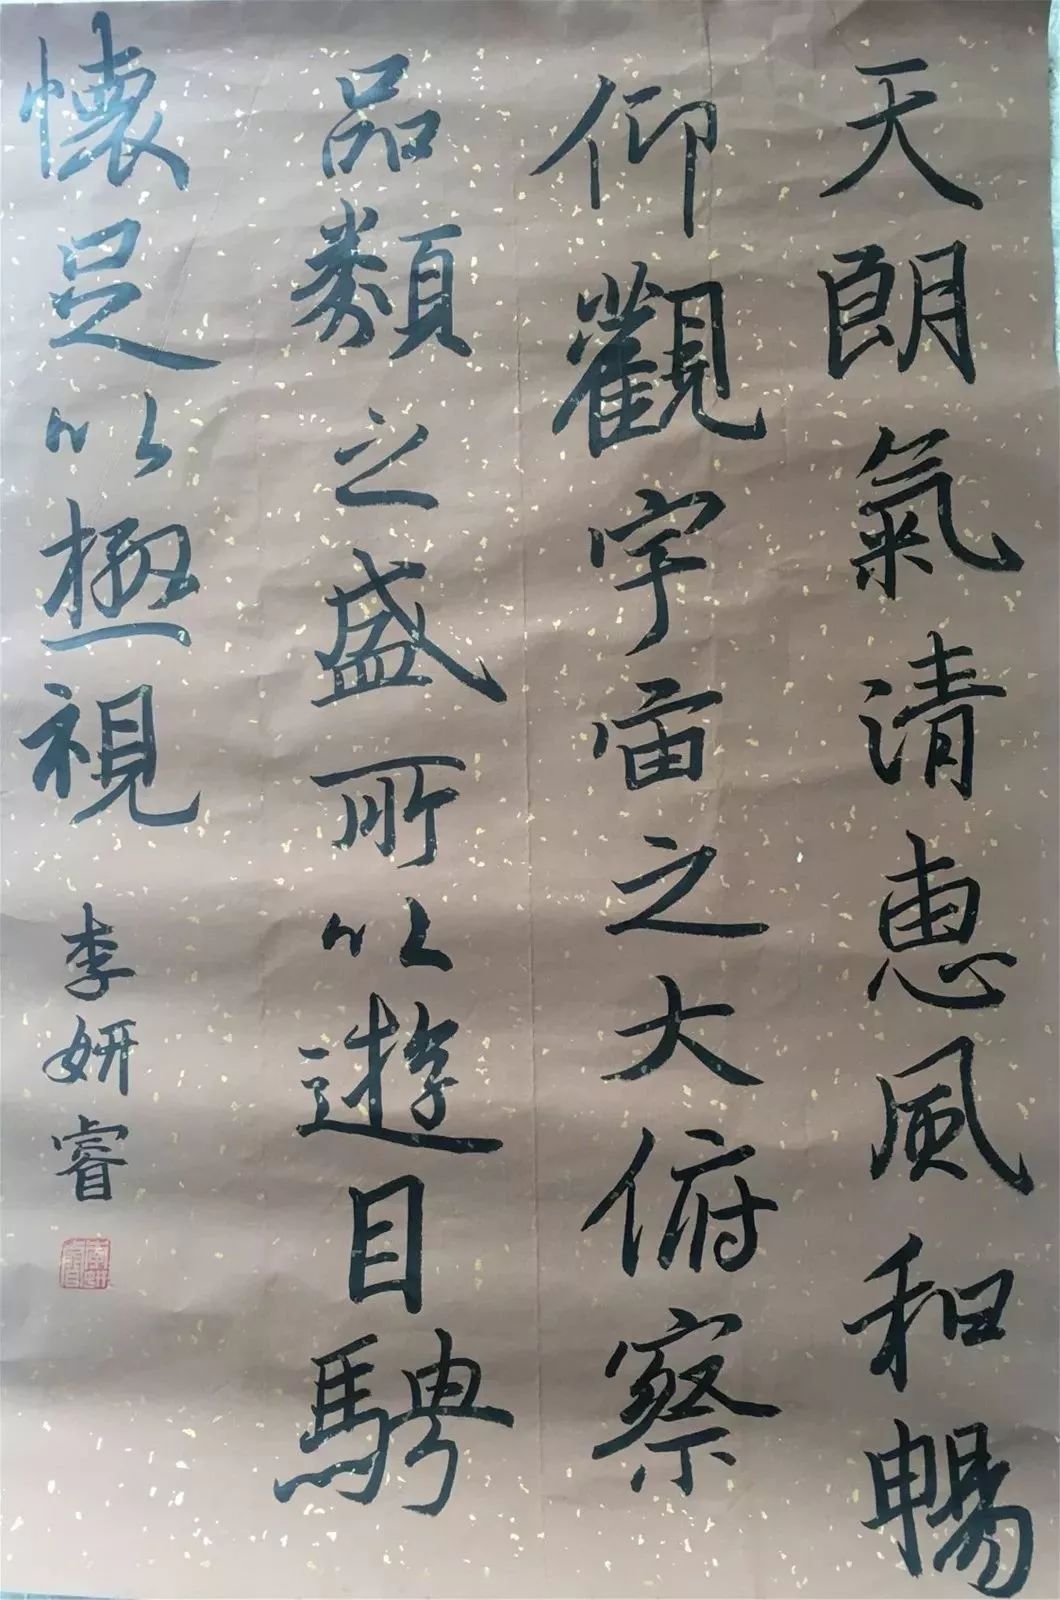 天朗氣清惠風和暢
仰觀宇宙之大俯察
品類之盛所以遊目騁
懷足以極視
李妍睿